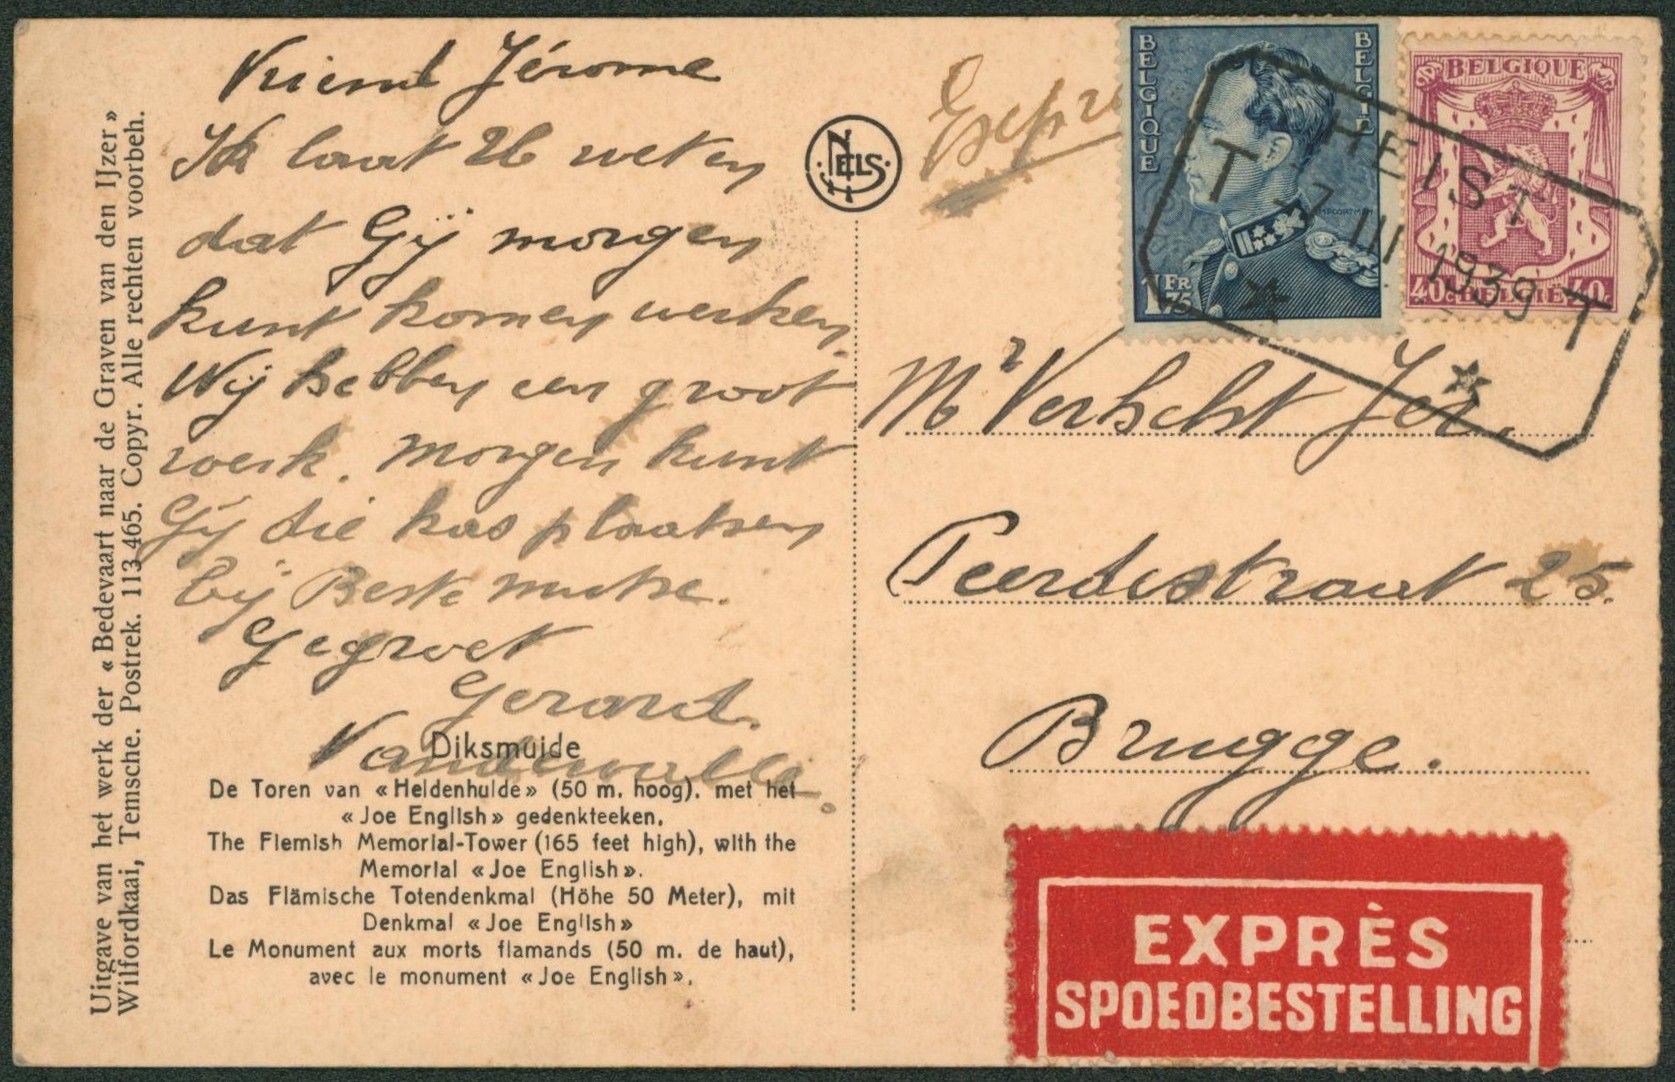 Vriend Jérome
Ik laat U weten
dat Gij morgen
kunt komen werken
Wij hebben een groot
werk. Morgen kunt
Gij die kas plaatsen
bij Beste
Gegroet
Gerard
Vandewalle.
Diksmuide
De Toren van «Heldenhulde» (50 m. hoog). met het
«Joe English» gedenkteeken.
The Flemish Memorial-Tower (165 feet high), with the
Memorial «Joe English».
Das Flämische Totendenkmal (Höhe 50 Meter), mit
Denkmal «Joe English»
Le Monument aux morts flamands (50 m. de haut),
avec le monument «Joe English».
Uitgave van het werk der «Bedevaart naar de Graven van den IJzer»
Wilfordkaai, Temsche. Postrek. 113.465. Copyr. Alle rechten voorbeh.
NELS
BELGIQUE
BELGIË
1FR
75
BELGIQUE
40c BELGIË 40
HEIST
T -7 III 1939 T
Mr Verhelst Jér.
Peerdestraat 25.
Brugge.
EXPRÈS
SPOEDBESTELLING